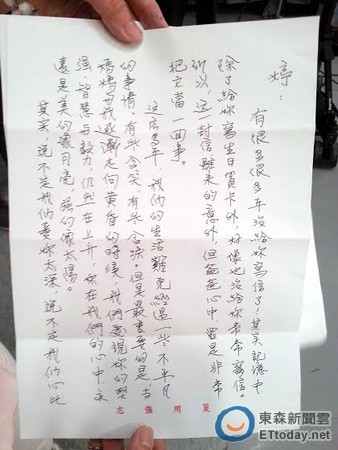 婷：
有很多很多年沒給妳寫信了！其實記憶中
除了給妳寫生日賀卡外，好像也沒給妳常常寫信。
所以，這一封信雖來的意外，但爸爸心中還是非常
把它當一回事。
這麼多年，我們的生活難免經過一些不平凡
的事情，有些含笑，有些含淚。但是最重要的是，當
媽媽與我逐漸走向黃昏的時候，我們發現妳的堅
強、智慧與毅力，仍然在上升，妳在我們的心中，永
遠是美的像月亮，強的像太陽。
其實，說不定我們愛妳太深，說不定我們心比
志強用箋
東森新聞雲
ETtoday.net